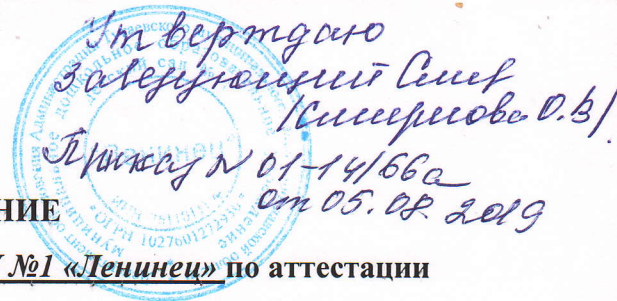 Утверждаю
Заведующий Смир
/Смирнова О.В/
Приказ № 01-14/66а
от 05.08.2019
НИЕ
№1 «Ленинец» по аттестации